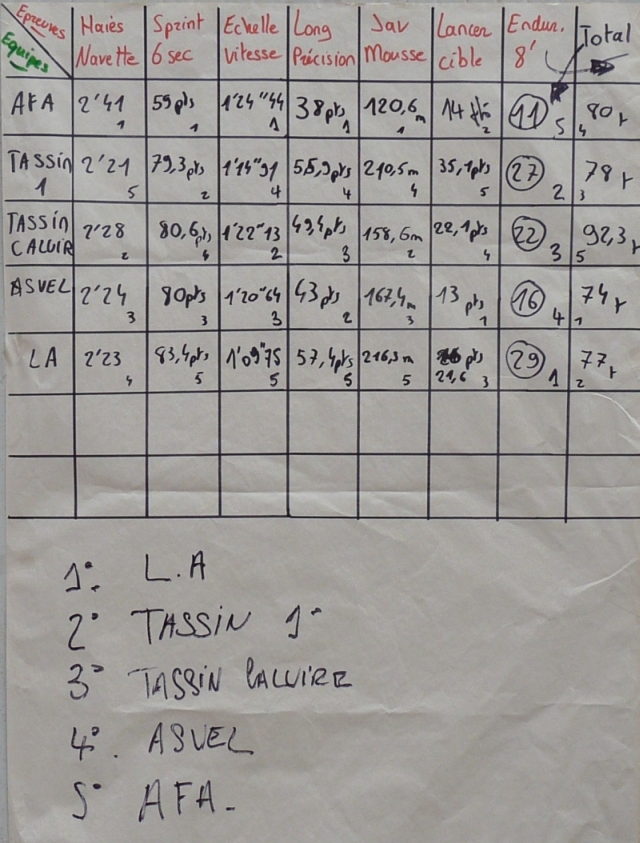 Epreuves Haies Sprint Echelle Long Jav Lancer Endur. Total
Equipes Navette 6 sec Vitesse Précision Mousse cible 8'
AFA 2'41 55pts 1'24"44 38pts 120,6m 14 11 80
1 1 1 1 1 2 5 4
TASSIN 2'21 79,3pts 1'14"91 55,9pts 210,5m 35,1pts 27 78
1 5 2 4 4 4 5 2 3
TASSIN 2'28 80,6pts 1'22"13 49,4pts 158,6m 22,1pts 22 92,3
CALUIR 2 4 2 3 2 4 3 5
ASVEL 2'24 80pts 1'20"64 43pts 167,4m 13 pts 16 74
3 3 3 2 3 1 4 1
LA 2'23 83,4pts 1'09"75 57,4pts 216,3m pts 29 77
4 5 5 5 5 21,6 3 1 2
1° L.A
2° TASSIN 1°
3° TASSIN CALUIRE
4°. ASVEL
5° AFA-